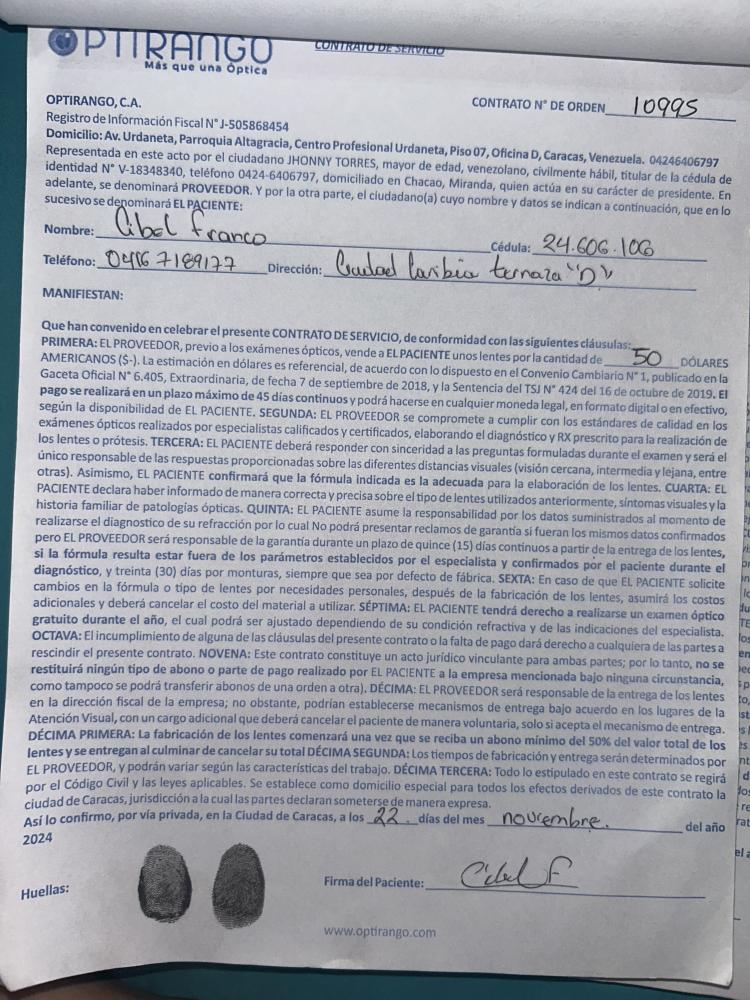 OPTIRANGO
Más que una Óptica
CONTRATO DE SERVICIO
OPTIRANGO, C.A.
CONTRATO N° DE ORDEN 10995
Registro de Información Fiscal N° J-505868454
Domicilio: Av. Urdaneta, Parroquia Altagracia, Centro Profesional Urdaneta, Piso 07, Oficina D, Caracas, Venezuela. 04246406797
Representada en este acto por el ciudadano JHONNY TORRES, mayor de edad, venezolano, civilmente hábil, titular de la cédula de
identidad N° V-18348340, teléfono 0424-6406797, domiciliado en Chacao, Miranda, quien actúa en su carácter de presidente. En
adelante, se denominará PROVEEDOR. Y por la otra parte, el ciudadano(a) cuyo nombre y datos se indican a continuación, que en lo
sucesivo se denominará EL PACIENTE:
Nombre: Cibel Franco Cédula: 24.606.106
Teléfono: 0416 7189177 Dirección: Ciudad Caribia terraza "D"
MANIFIESTAN:
Que han convenido en celebrar el presente CONTRATO DE SERVICIO, de conformidad con las siguientes cláusulas:
PRIMERA: EL PROVEEDOR, previo a los exámenes ópticos, vende a EL PACIENTE unos lentes por la cantidad de 50 DÓLARES
AMERICANOS ($-). La estimación en dólares es referencial, de acuerdo con lo dispuesto en el Convenio Cambiario N° 1, publicado en la
Gaceta Oficial N° 6.405, Extraordinaria, de fecha 7 de septiembre de 2018, y la Sentencia del TSJ N° 424 del 16 de octubre de 2019. El
pago se realizará en un plazo máximo de 45 días continuos y podrá hacerse en cualquier moneda legal, en formato digital o en efectivo,
según la disponibilidad de EL PACIENTE. SEGUNDA: EL PROVEEDOR se compromete a cumplir con los estándares de calidad en los
exámenes ópticos realizados por especialistas calificados y certificados, elaborando el diagnóstico y RX prescrito para la realización de
los lentes o prótesis. TERCERA: EL PACIENTE deberá responder con sinceridad a las preguntas formuladas durante el examen y será el
único responsable de las respuestas proporcionadas sobre las diferentes distancias visuales (visión cercana, intermedia y lejana, entre
otras). Asimismo, EL PACIENTE confirmará que la fórmula indicada es la adecuada para la elaboración de los lentes. CUARTA: EL
PACIENTE declara haber informado de manera correcta y precisa sobre el tipo de lentes utilizados anteriormente, síntomas visuales y la
historia familiar de patologías ópticas. QUINTA: EL PACIENTE asume la responsabilidad por los datos suministrados al momento de
realizarse el diagnostico de su refracción por lo cual No podrá presentar reclamos de garantía si fueran los mismos datos confirmados
pero EL PROVEEDOR será responsable de la garantía durante un plazo de quince (15) días continuos a partir de la entrega de los lentes,
si la fórmula resulta estar fuera de los parámetros establecidos por el especialista y confirmados por el paciente durante el
diagnóstico, y treinta (30) días por monturas, siempre que sea por defecto de fábrica. SEXTA: En caso de que EL PACIENTE solicite
cambios en la fórmula o tipo de lentes por necesidades personales, después de la fabricación de los lentes, asumirá los costos
adicionales y deberá cancelar el costo del material a utilizar. SÉPTIMA: EL PACIENTE tendrá derecho a realizarse un examen óptico
gratuito durante el año, el cual podrá ser ajustado dependiendo de su condición refractiva y de las indicaciones del especialista.
OCTAVA: El incumplimiento de alguna de las cláusulas del presente contrato o la falta de pago dará derecho a cualquiera de las partes a
rescindir el presente contrato. NOVENA: Este contrato constituye un acto jurídico vinculante para ambas partes; por lo tanto, no se
restituirá ningún tipo de abono o parte de pago realizado por EL PACIENTE a la empresa mencionada bajo ninguna circunstancia,
como tampoco se podrá transferir abonos de una orden a otra). DÉCIMA: EL PROVEEDOR será responsable de la entrega de los lentes
en la dirección fiscal de la empresa; no obstante, podrían establecerse mecanismos de entrega bajo acuerdo en los lugares de la
Atención Visual, con un cargo adicional que deberá cancelar el paciente de manera voluntaria, solo si acepta el mecanismo de entrega.
DÉCIMA PRIMERA: La fabricación de los lentes comenzará una vez que se reciba un abono mínimo del 50% del valor total de los
lentes y se entregan al culminar de cancelar su total DÉCIMA SEGUNDA: Los tiempos de fabricación y entrega serán determinados por
EL PROVEEDOR, y podrán variar según las características del trabajo. DÉCIMA TERCERA: Todo lo estipulado en este contrato se regirá
por el Código Civil y las leyes aplicables. Se establece como domicilio especial para todos los efectos derivados de este contrato la
ciudad de Caracas, jurisdicción a la cual las partes declaran someterse de manera expresa.
Así lo confirmo, por vía privada, en la Ciudad de Caracas, a los 22. días del mes noviembre. del año
2024
Huellas:
Firma del Paciente: Cibel F
www.optirango.com